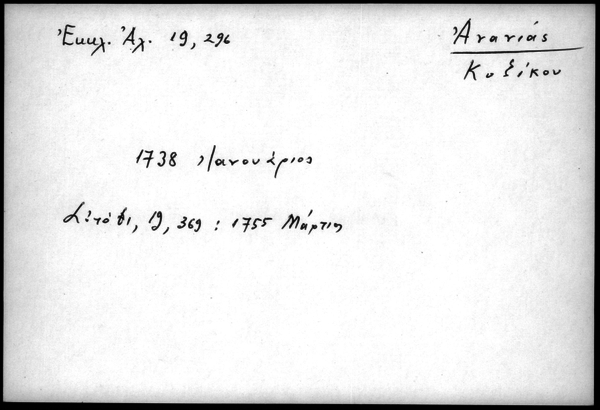 Ἐκκλ. Ἀλ. 19, 296
Ἀνανιάς
Κυζίκου
1738 Ἰανουάριος
Αὐτόθι, 19, 369 : 1755 Μάρτιος